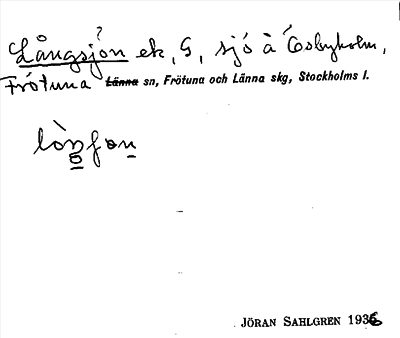 Långsjön ek, S, sjö å Össbyholm,
Frötuna Länna sn, Frötuna och Länna skg, Stockholms l.
lòŋfon
JÖRAN SAHLGREN 1936